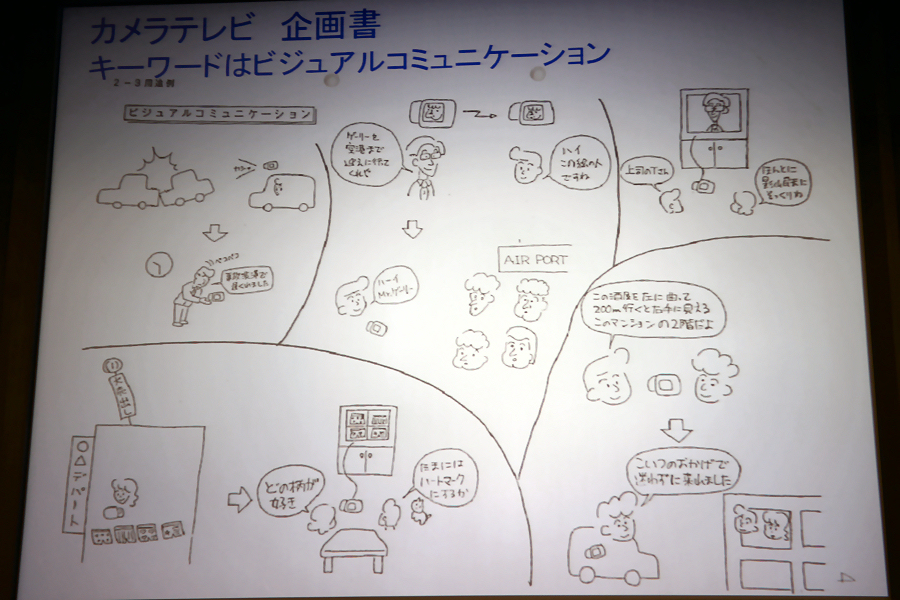 カメラテレビ 企画書
キーワードはビジュアルコミュニケーション
2-3用途例
ビジュアルコミュニケーション
ペコペコ
事故渋滞で
遅くなりました
ゲーリーを
空港まで
迎えに行って
くれや
ハイ
この絵の人
ですね
AIR PORT
ハーイ
Mr.ゲーリー
上司のTさん
ほんとに
そっくりね
この酒屋を左に曲って
200m行くと右手に見える
このマンションの2階だよ
こいつのおかげで
迷わずに来れました
大売出し
○△デパート
どの柄が
好き
たまには
ハートマーク
にするか